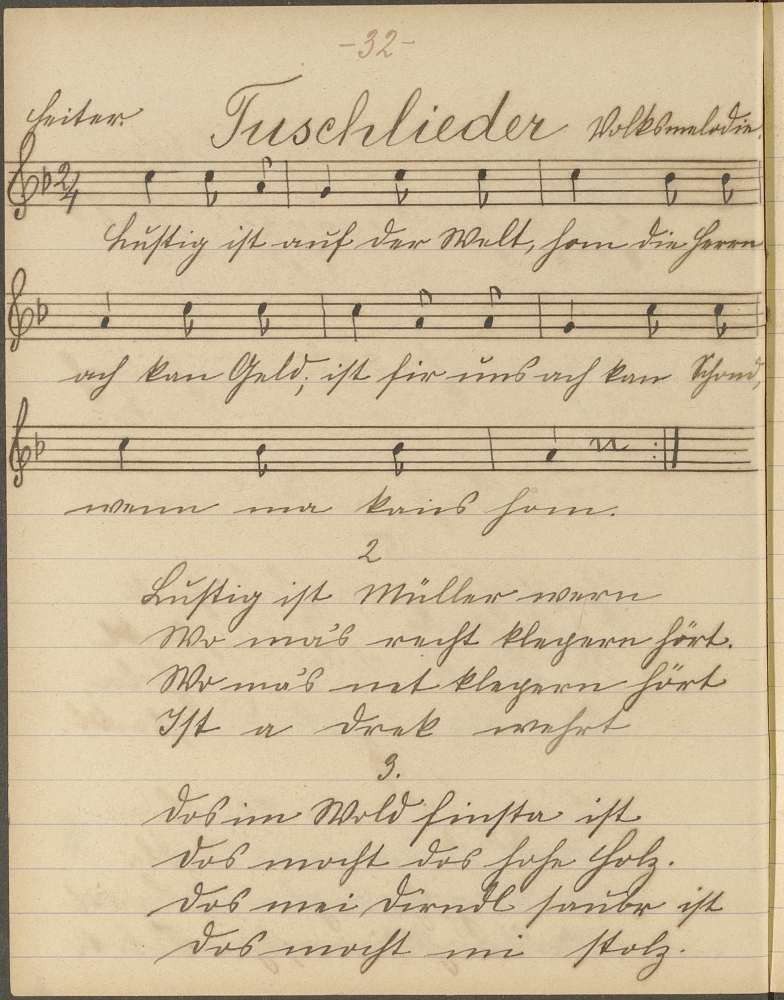 -32-
Heiter.
Tuschlieder
Volksmelodie.
2/4
Lustig ist auf der Welt, hom die Herrn
ach kan Geld; ist fir uns ach kan Schond,
wenn ma kans hom.
2
Lustig ist Müller wern
Wo ma's recht klepern hört.
Wo ma's net klepern hört
Ist a drek wehrt
3.
Dos im Wold finsta ist
Dos mocht dos hohe Holz.
Dos mei Dirndl saubr ist
Dos mocht mi stolz.